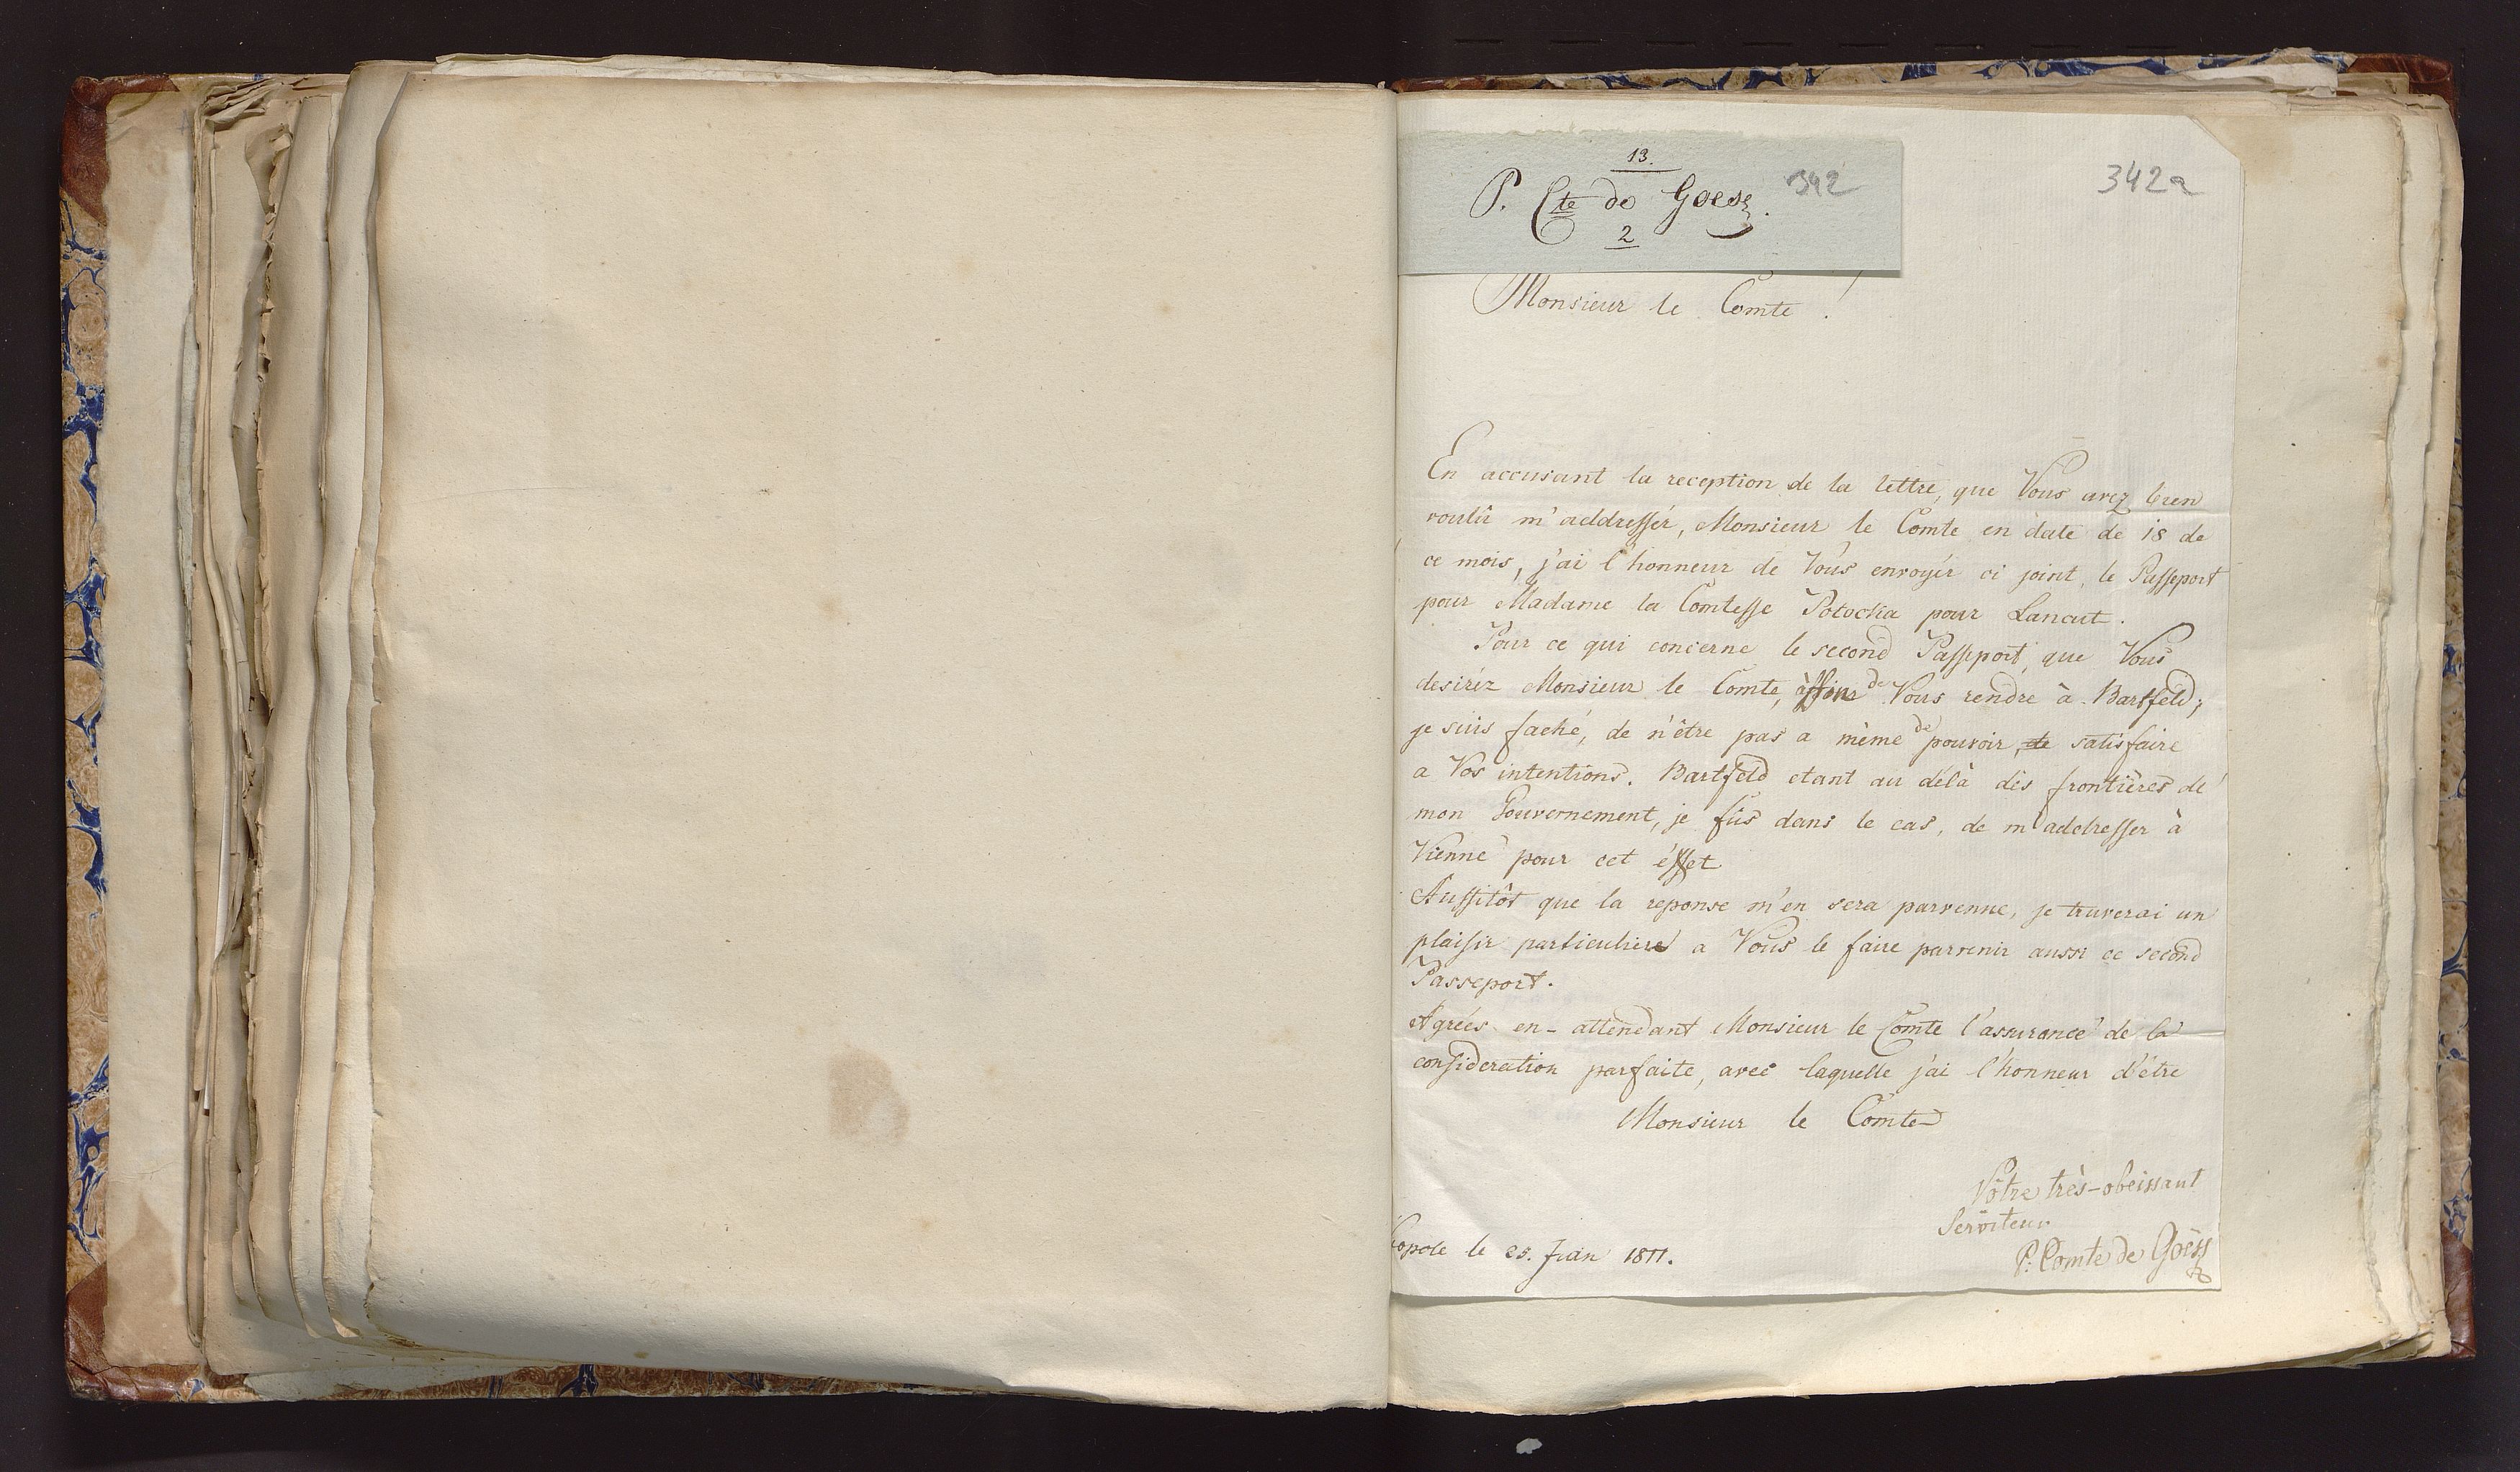 13.
P. Cte de Goess.
2
342
342a
Monsieur le Comte !
En accusant la reception de la lettre, que Vous avez bien
voulû m'addressér, Monsieur le Comte en date de 18 de
ce mois, j'ai l'honneur de Vous envoyér ci joint, le Passeport
pour Madame la Comtesse Potocka pour Lancut.
Pour ce qui concerne le second Passeport, que Vous
desiréz Monsieur le Comte, àffine de Vous rendre à Bartfeld;
je suis faché, de n'être pas a même de pouvoir, de satisfaire
a Vos intentions. Bartfeld etant au délà dès frontières de
mon Gouvernement, je fûs dans le cas, de m'addresser à
Vienne pour cet éffet
Aussitôt que la reponse m'en sera parvenue, je truverai un
plaisir particuliere a Vous le faire parvenir aussi ce second
Passeport.
Agrées en-attendant Monsieur le Comte l'assurance de la
consideration parfaite, avec laquelle j'ai l'honneur d'être
Monsieur le Comte
Vôtre très-obeissant
Serviteur
P. Comte de Goëss
opole le 25. Juin 1811.